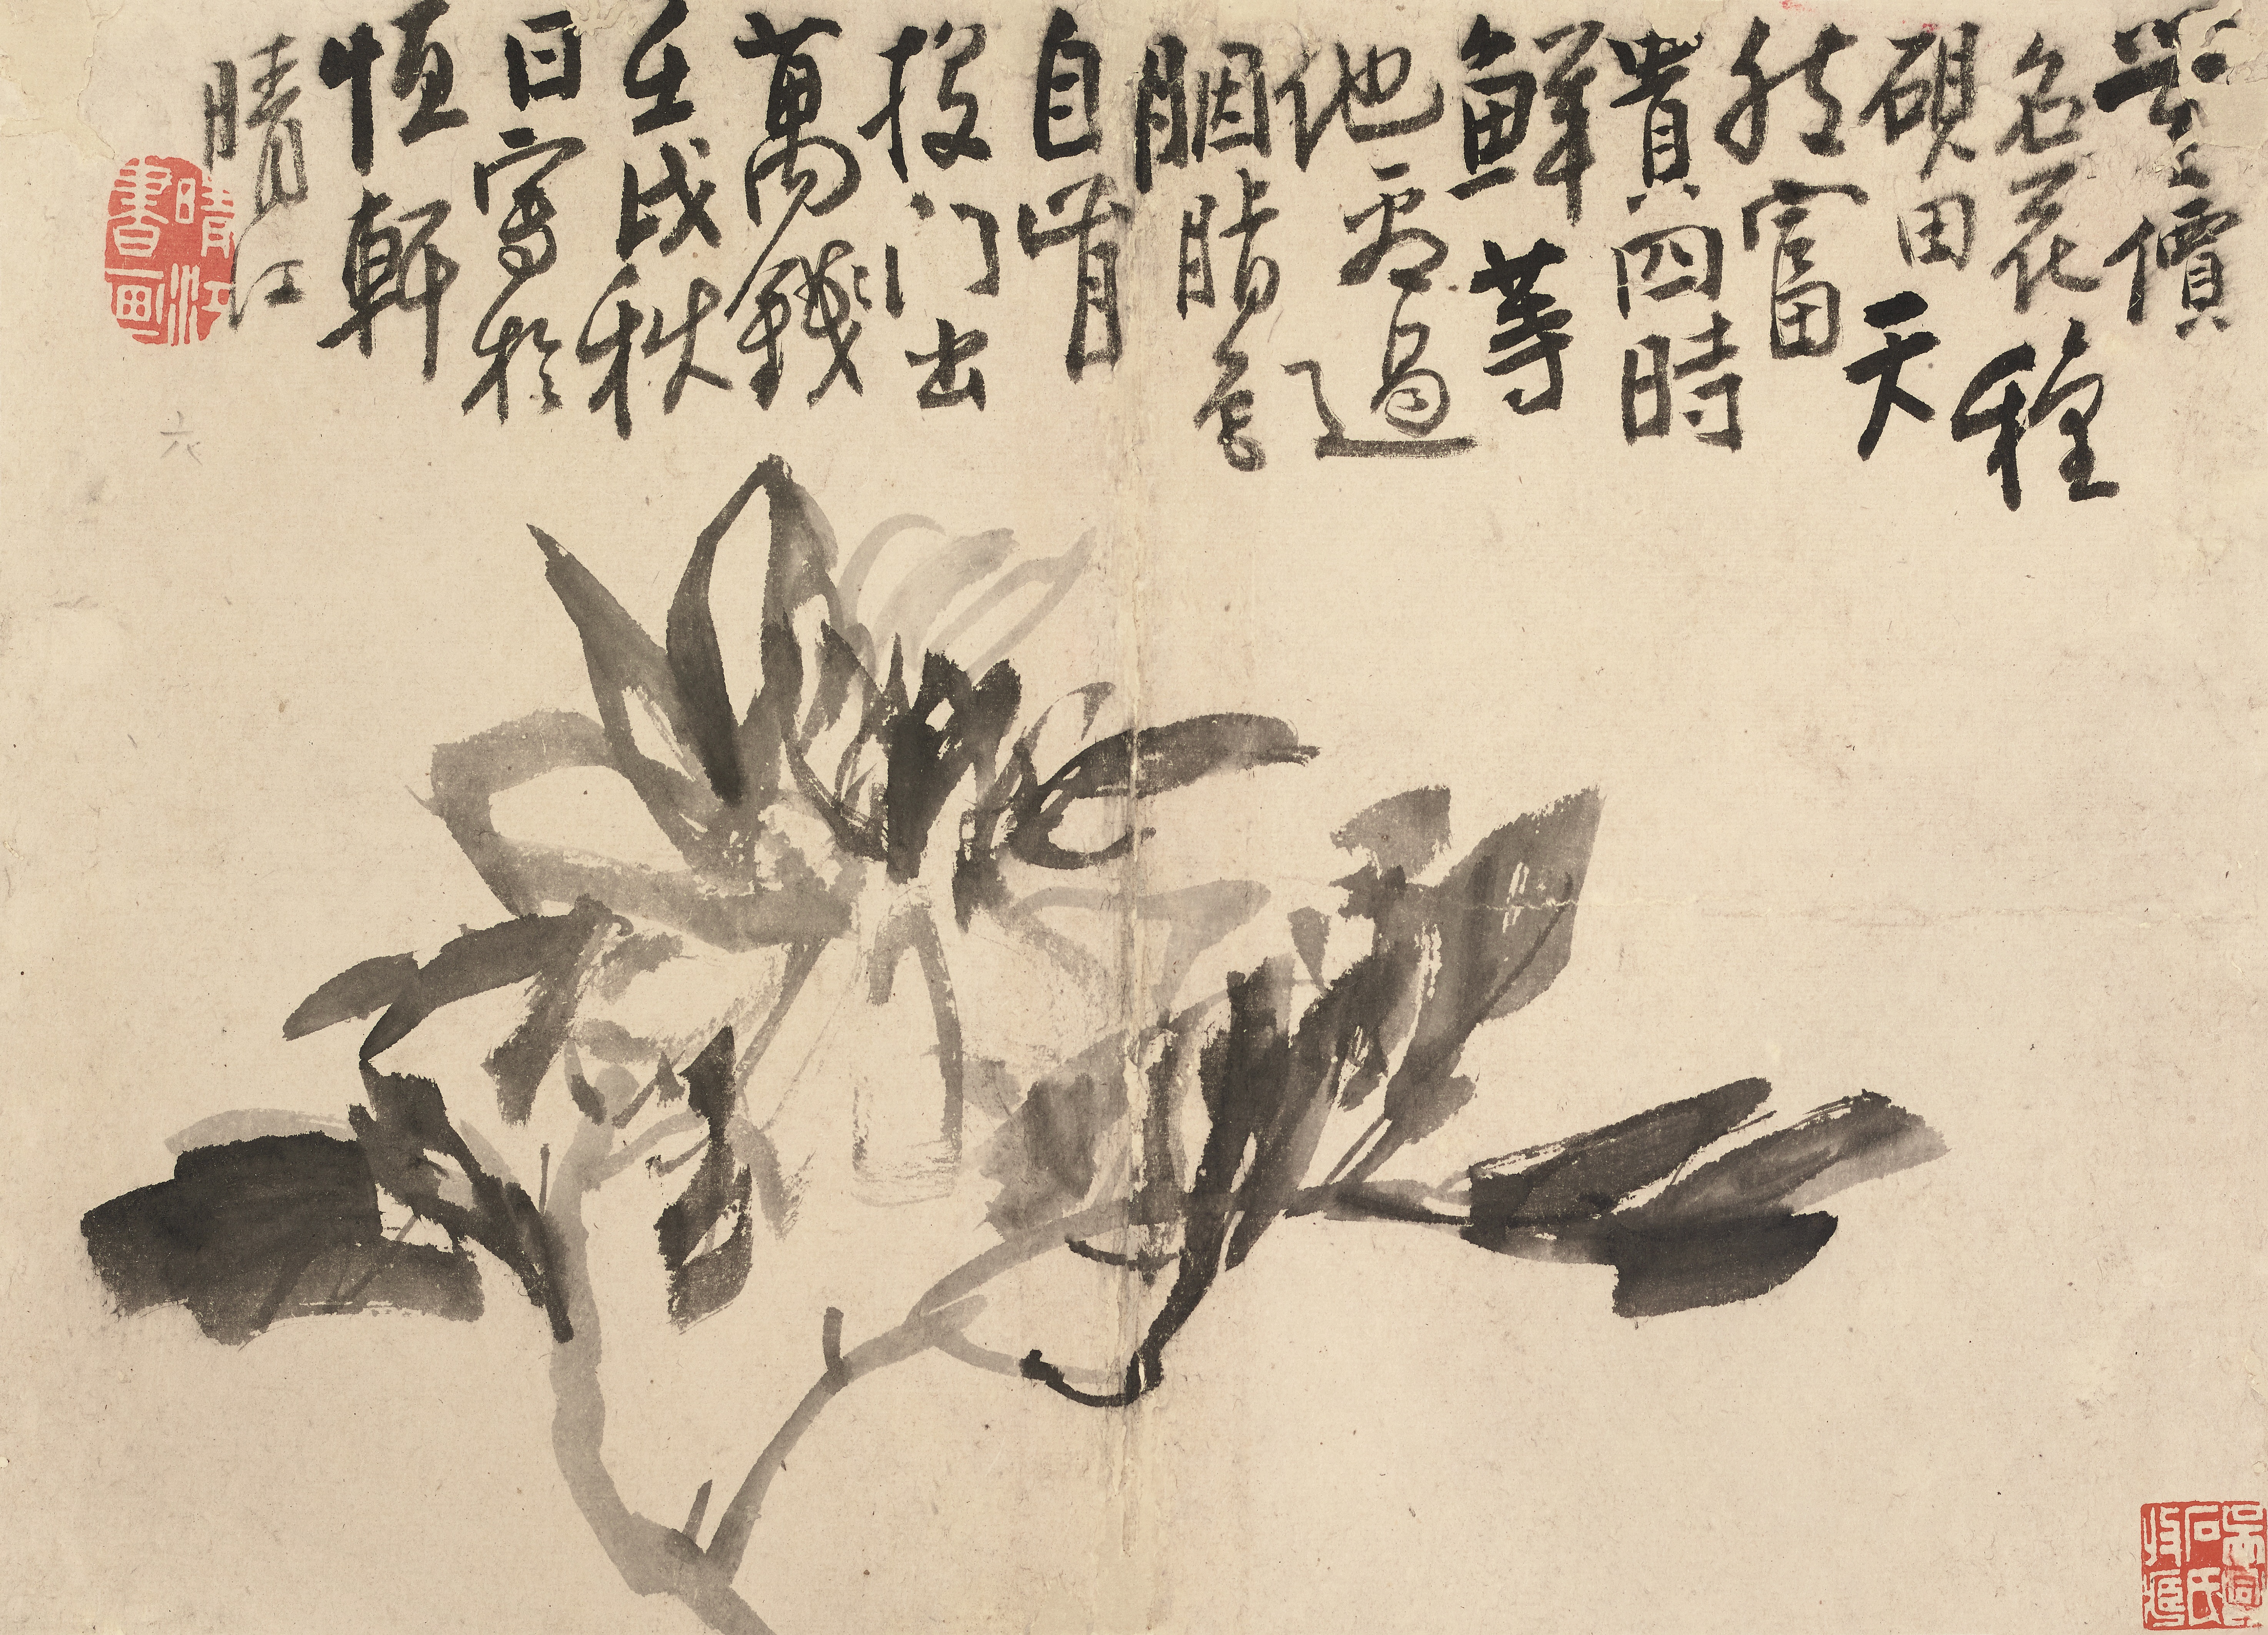 無價
名花種
硯田天
然富
貴四時
鮮等
他過
胭脂色
自肯
投门出
萬錢
壬戌秋
日寫於
恒軒
晴江
晴江
書畫
石氏